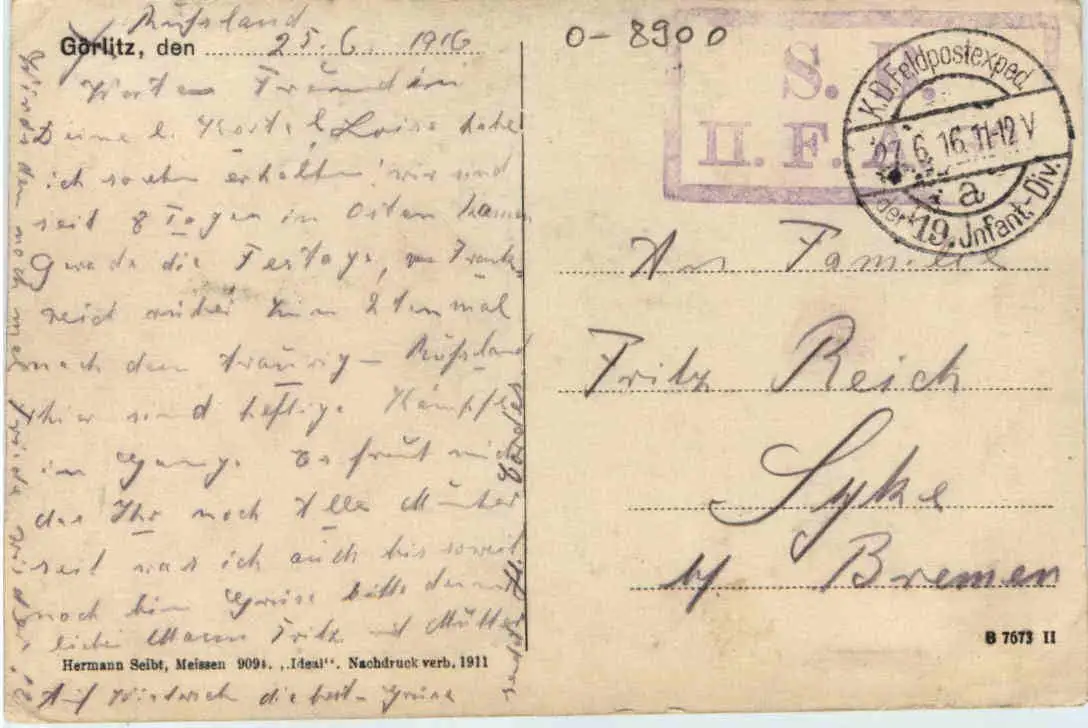 Rußland
Görlitz, den 25. 6. 1916
Werte Freundin
Deine l. Karte l. Loise habe
ich soeben erhalten, wir sind
seit 8 Tagen in Osten kamen
Gerade die Festage, von Frank-
reich rüber zum 2tenmal
nach dem traurig- Rußland
hier sind heftige Kämpfe
im Gang. Es freut mich
das Ihr noch Alle Munter
seit was ich auch bis soweit
noch bin Grüse bitte deinen
lieben Mann Fritz und Mutter
Auf Wiedersehn die best- Grüse
noch mal Friede
Hermann Seibt, Meissen 909s. „Ideal“. Nachdruck verb. 1911
0-8900
S. B.
II. F. A.
K.D. Feldpostexped.
27.6.16.11-12V
a
der 19. Infant.-Div.
An Familie
Fritz Reich
Syke
b/. Bremen
B 7673 II